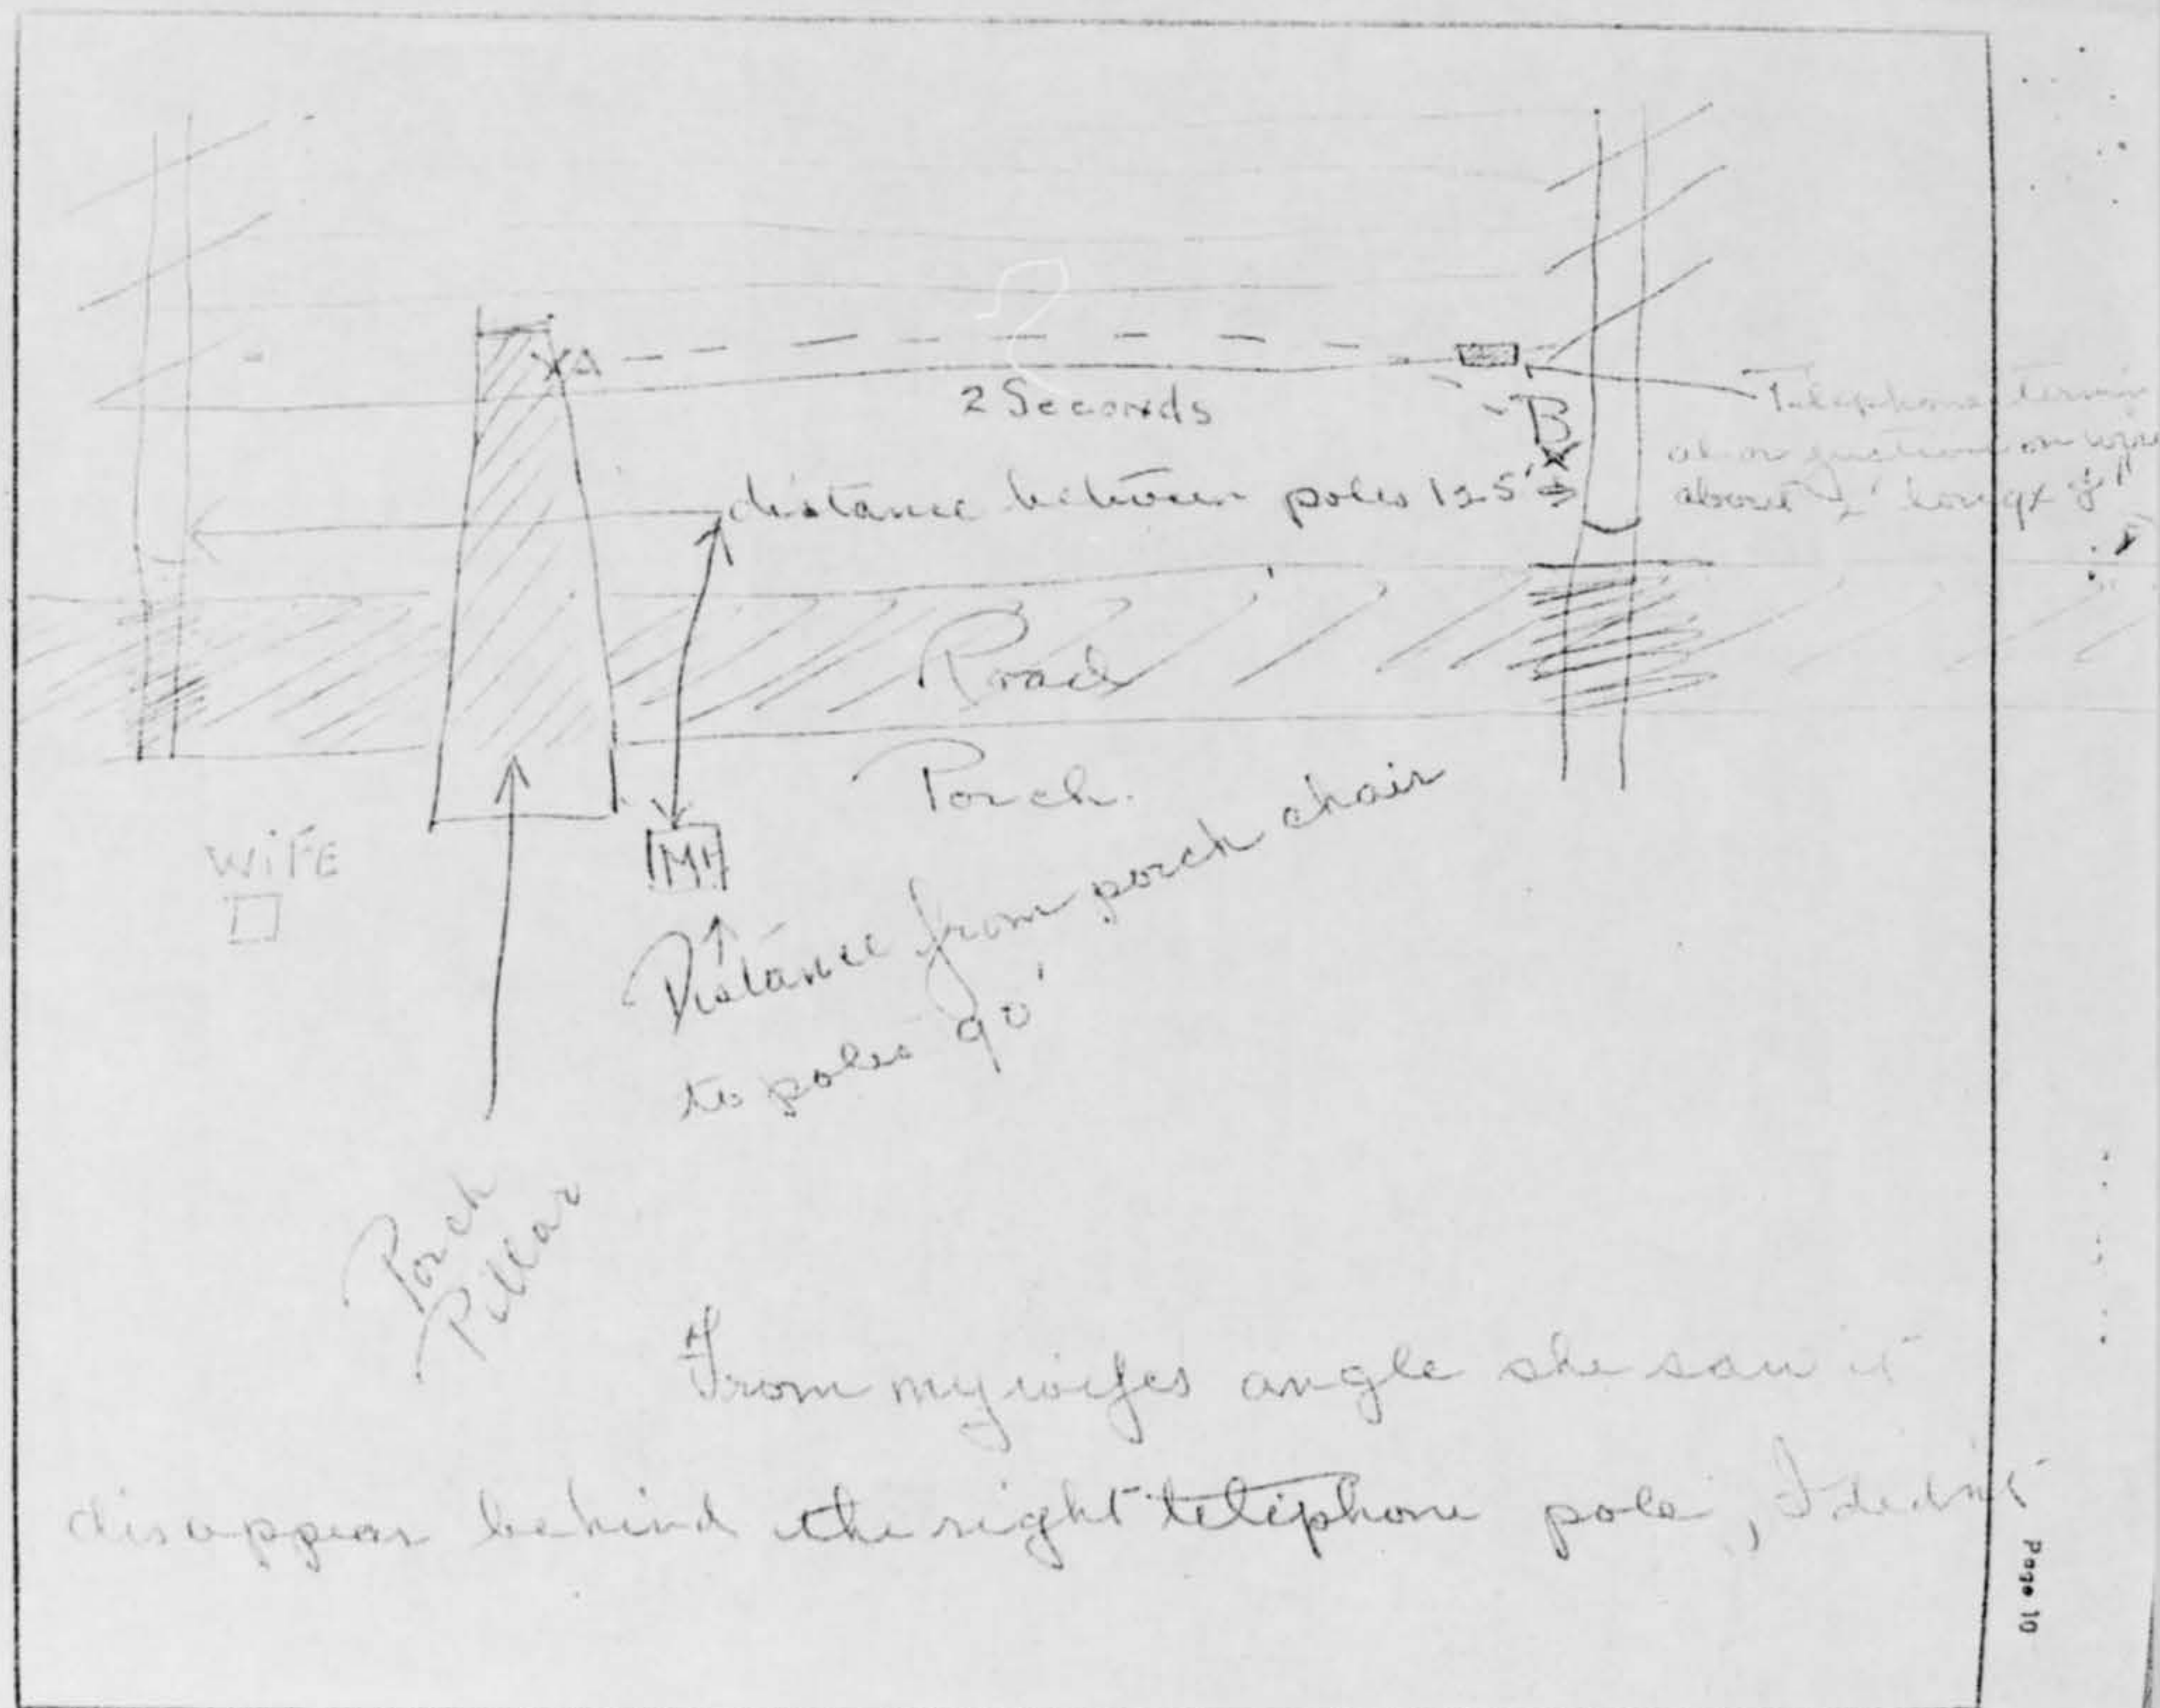 XA
2 Seconds
B
X
Telephone
on wire
about long x 8"
distance between poles 125'
Road
Porch.
WiFE
ME
Distance from porch chair
to poles 90'
Porch
Pillar
From my wifes angle she saw it
disappear behind the right teliphone pole, I didn't
Page 10